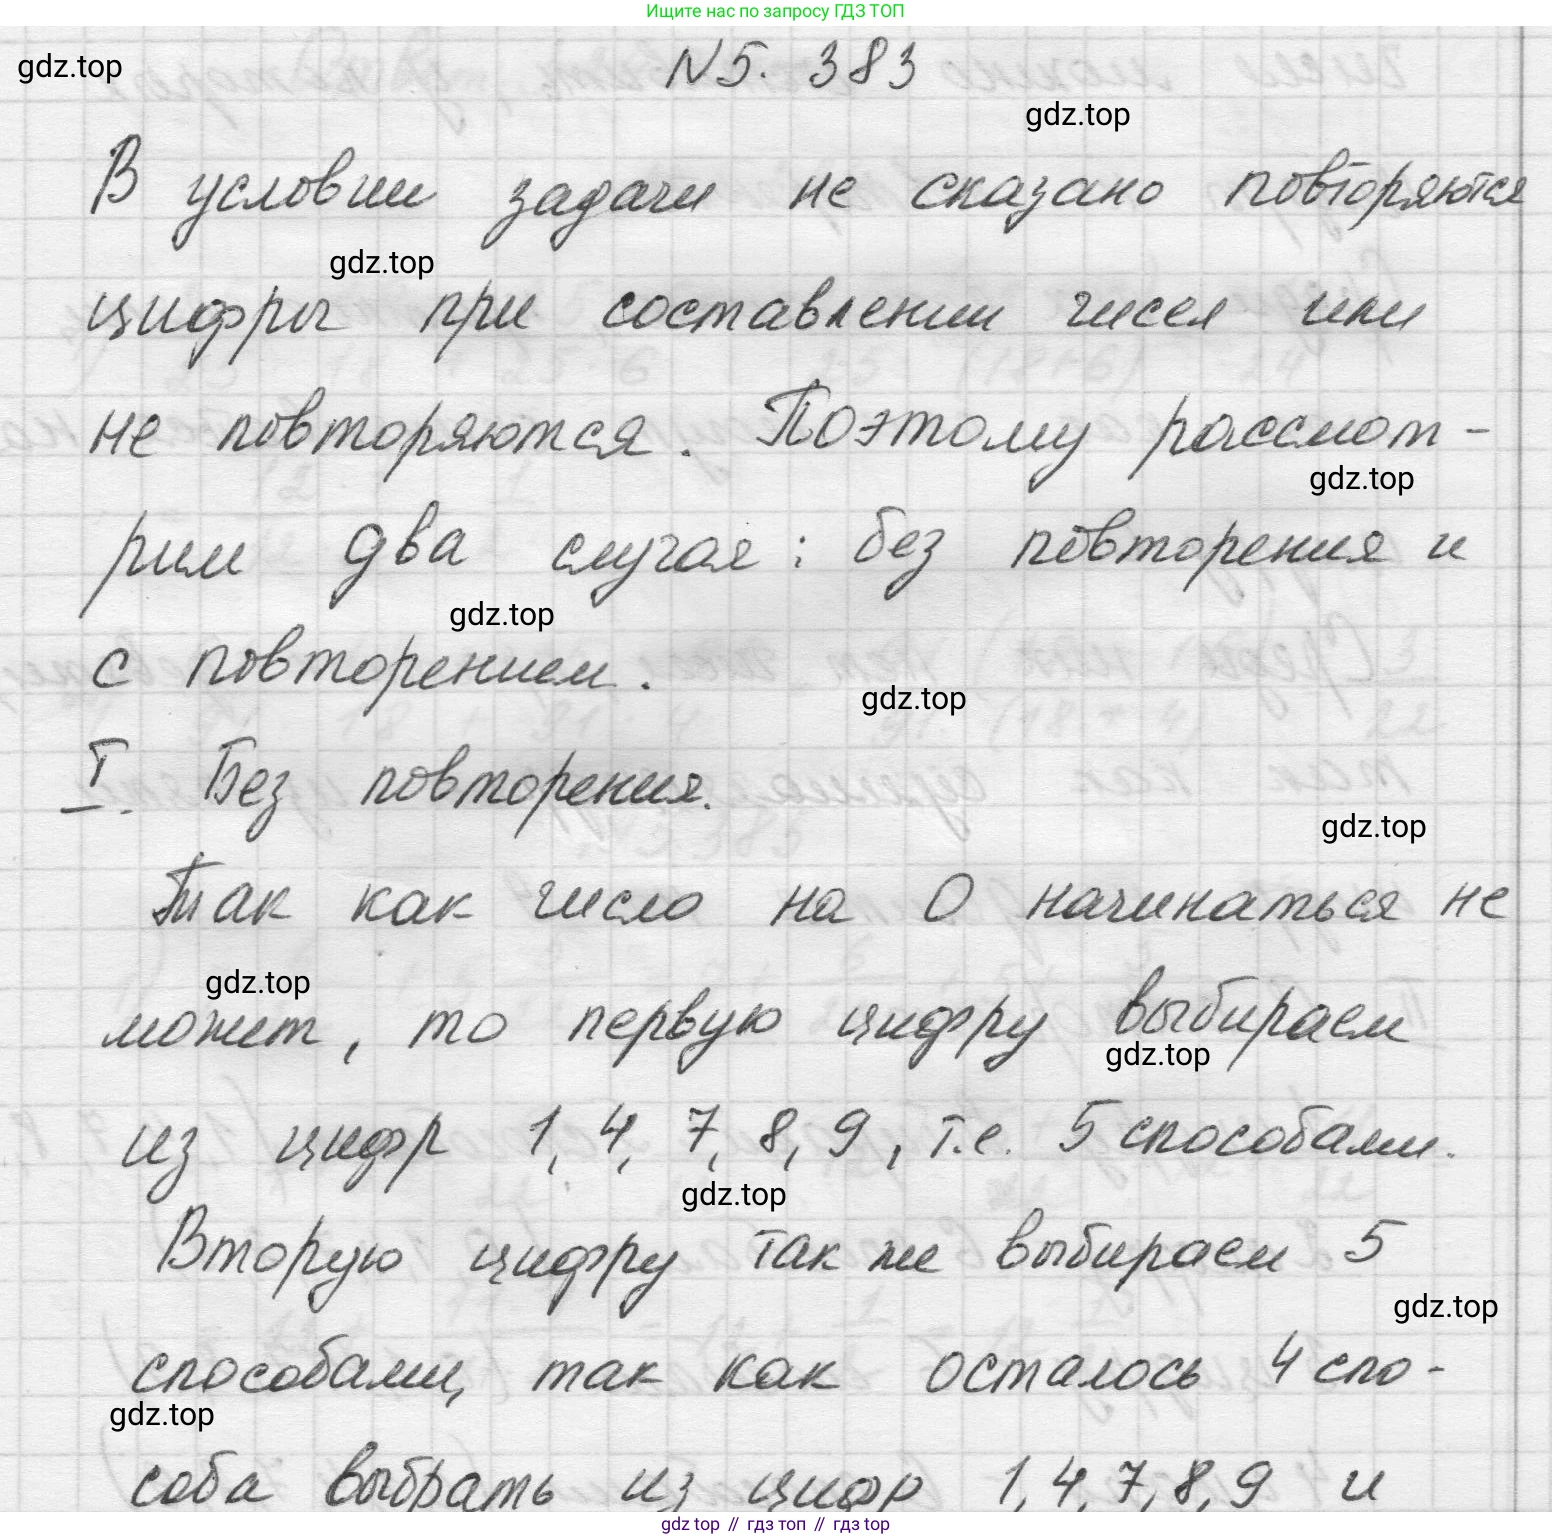 Ищите нас по запросу ГДЗ ТОП
gdz.top
N5. 383
gdz.top
В условии задачи не сказано повторяются
gdz.top
цифры при составлении чисел или
не повторяются. Поэтому рассмот-
gdz.top
рим два случая: без повторения и
gdz.top
с повторением.
gdz.top
I. Без повторения.
gdz.top
Так как число на 0 начинаться не
gdz.top
может, то первую цифру выбираем
gdz.top
из цифр 1, 4, 7, 8, 9, т.е. 5 способами.
gdz.top
Вторую цифру так же выбираем 5
gdz.top
способами, так как осталось 4 спо-
gdz.top
соба выбрать из цифр 1, 4, 7, 8, 9 и
gdz.top // гдз топ // гдз.top